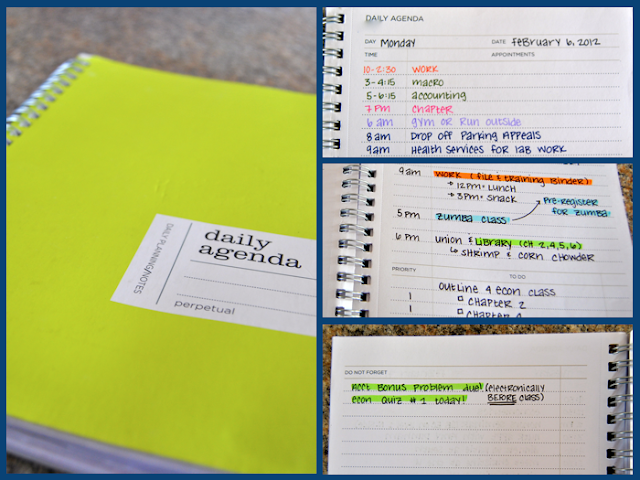 DAILY PLANNING/NOTES
daily
agenda
perpetual
DAILY AGENDA
DAY Monday DATE February 6, 2012
TIME APPOINTMENTS
10-2:30 work
3-4:15 macro
5-6:15 accounting
7 pm chapter
6 am gym or run outside
8am Drop off Parking Appeals
9am Health Services for lab work
9am work (file & training Binder)
→ 12pm · lunch
→ 3pm · snack
Pre-register
for zumba
5 pm zumba class
6 pm union & library (CH 2,4,5,6)
↳ shrimp & corn chowder
PRIORITY TO DO
outline 4 econ class
1 □ chapter 2
1 □ chapter
DO NOT FORGET
Acct Bonus problem due! (electronically
econ Quiz #1 today! BEFORE class)